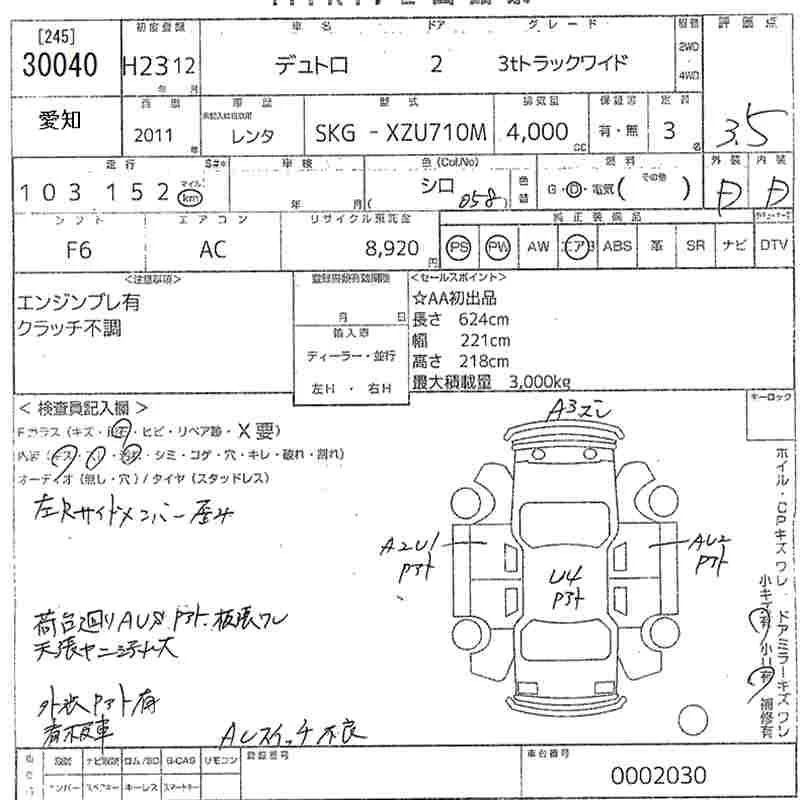 [245]
30040
愛知
初度登録
H23 12
年 月
車名
デュトロ
ドア
2
グレード
3tトラックワイド
2WD
・
4WD
評価点
3.5
2011
年
レンタ
型式
SKG - XZU710M
排気量
4,000
cc
保証書
有・無
定員
3
名
走行
103 152
マイル
km
車検
年 月
色(Col.No)
シロ
058
色替
燃料
G・D・電気( その他 )
外装
D
内装
D
シフト
F6
エアコン
AC
リサイクル預託金
8,920
円
純正装備品
PS
PW
AW
エアB
ABS
革
SR
ナビ
DTV
<注意事項>
エンジンブレ有
クラッチ不調
月 日
輸入車
ディーラー・並行
左H ・ 右H
<セールスポイント>
☆AA初出品
長さ 624cm
幅 221cm
高さ 218cm
最大積載量 3,000kg
キーロック
< 検査員記入欄 >
Fガラス (キズ・飛石・ヒビ・リペア跡・X要)
シミ・コゲ・穴・キレ・破れ・割れ)
オーディオ (無し・穴) / タイヤ (スタッドレス)
左Rサイドメンバー
A3ズレ
A2U1
Pアト
AU2
Pアト
U4
Pアト
荷台廻りAUS Pアト、板張ワレ
天張ヤニ汚れ大
外装Pアト有
看板車
ACスイッチ不良
ホイル・CPキズワレ ドアミラーキズワレ
小キズ有 小U有 補修有
リモコン
スペアキー
キーレス
スマートキー
登録番号
車台番号
0002030